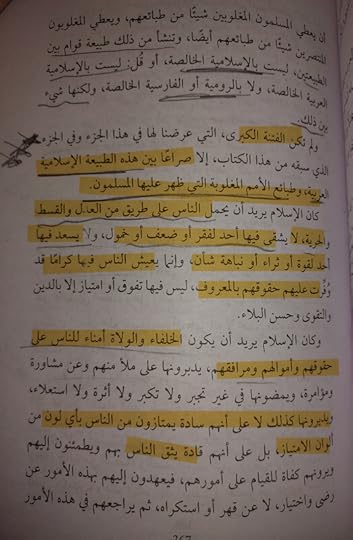 أن يعطي المسلمون المغلوبين شيئًا من طبائعهم، ويعطي المغلوبون
المنتصرين شيئًا من طبائعهم أيضًا، وتنشأ من ذلك طبيعة قوام بين
الطبيعتين، ليست بالإسلامية الخالصة، أو قل: ليست بالإسلامية
العربية الخالصة، ولا بالرومية أو الفارسية الخالصة، ولكنها شيء
بين ذلك.
ولم تكن الفتنة الكبرى، التي عرضنا لها في هذا الجزء وفي الجزء
الذي سبقه من هذا الكتاب، إلا صراعًا بين هذه الطبيعة الإسلامية
العربية، وطبائع الأمم المغلوبة التي ظهر عليها المسلمون.
كان الإسلام يريد أن يحمل الناس على طريق من العدل والقسط
والحرية، لا يشقى فيها أحد لفقر أو ضعف أو خمول، ولا يسعد فيها
أحد لقوة أو ثراء أو نباهة شأن، وإنما يعيش الناس فيها كرامًا قد
وُفِّرت عليهم حقوقهم بالمعروف، ليس فيها تفوق أو امتياز إلا بالدين
والتقوى وحسن البلاء.
وكان الإسلام يريد أن يكون الخلفاء والولاة أمناء للناس على
حقوقهم وأموالهم ومرافقهم، يدبرونها على ملأ منهم وعن مشاورة
ومؤامرة، ويمضونها في غير تجبر ولا تكبر ولا أثرة ولا استعلاء،
ويدبرونها كذلك لا على أنهم سادة يمتازون من الناس بأي لون من
ألوان الامتياز، بل على أنهم قادة يثق الناس بهم ويطمئنون إليهم
ويرونهم كفاة للقيام على أمورهم، فيعهدون إليهم بهذه الأمور عن
رضى واختيار، لا عن قهر أو استكراه، ثم يراجعهم في هذه الأمور
267